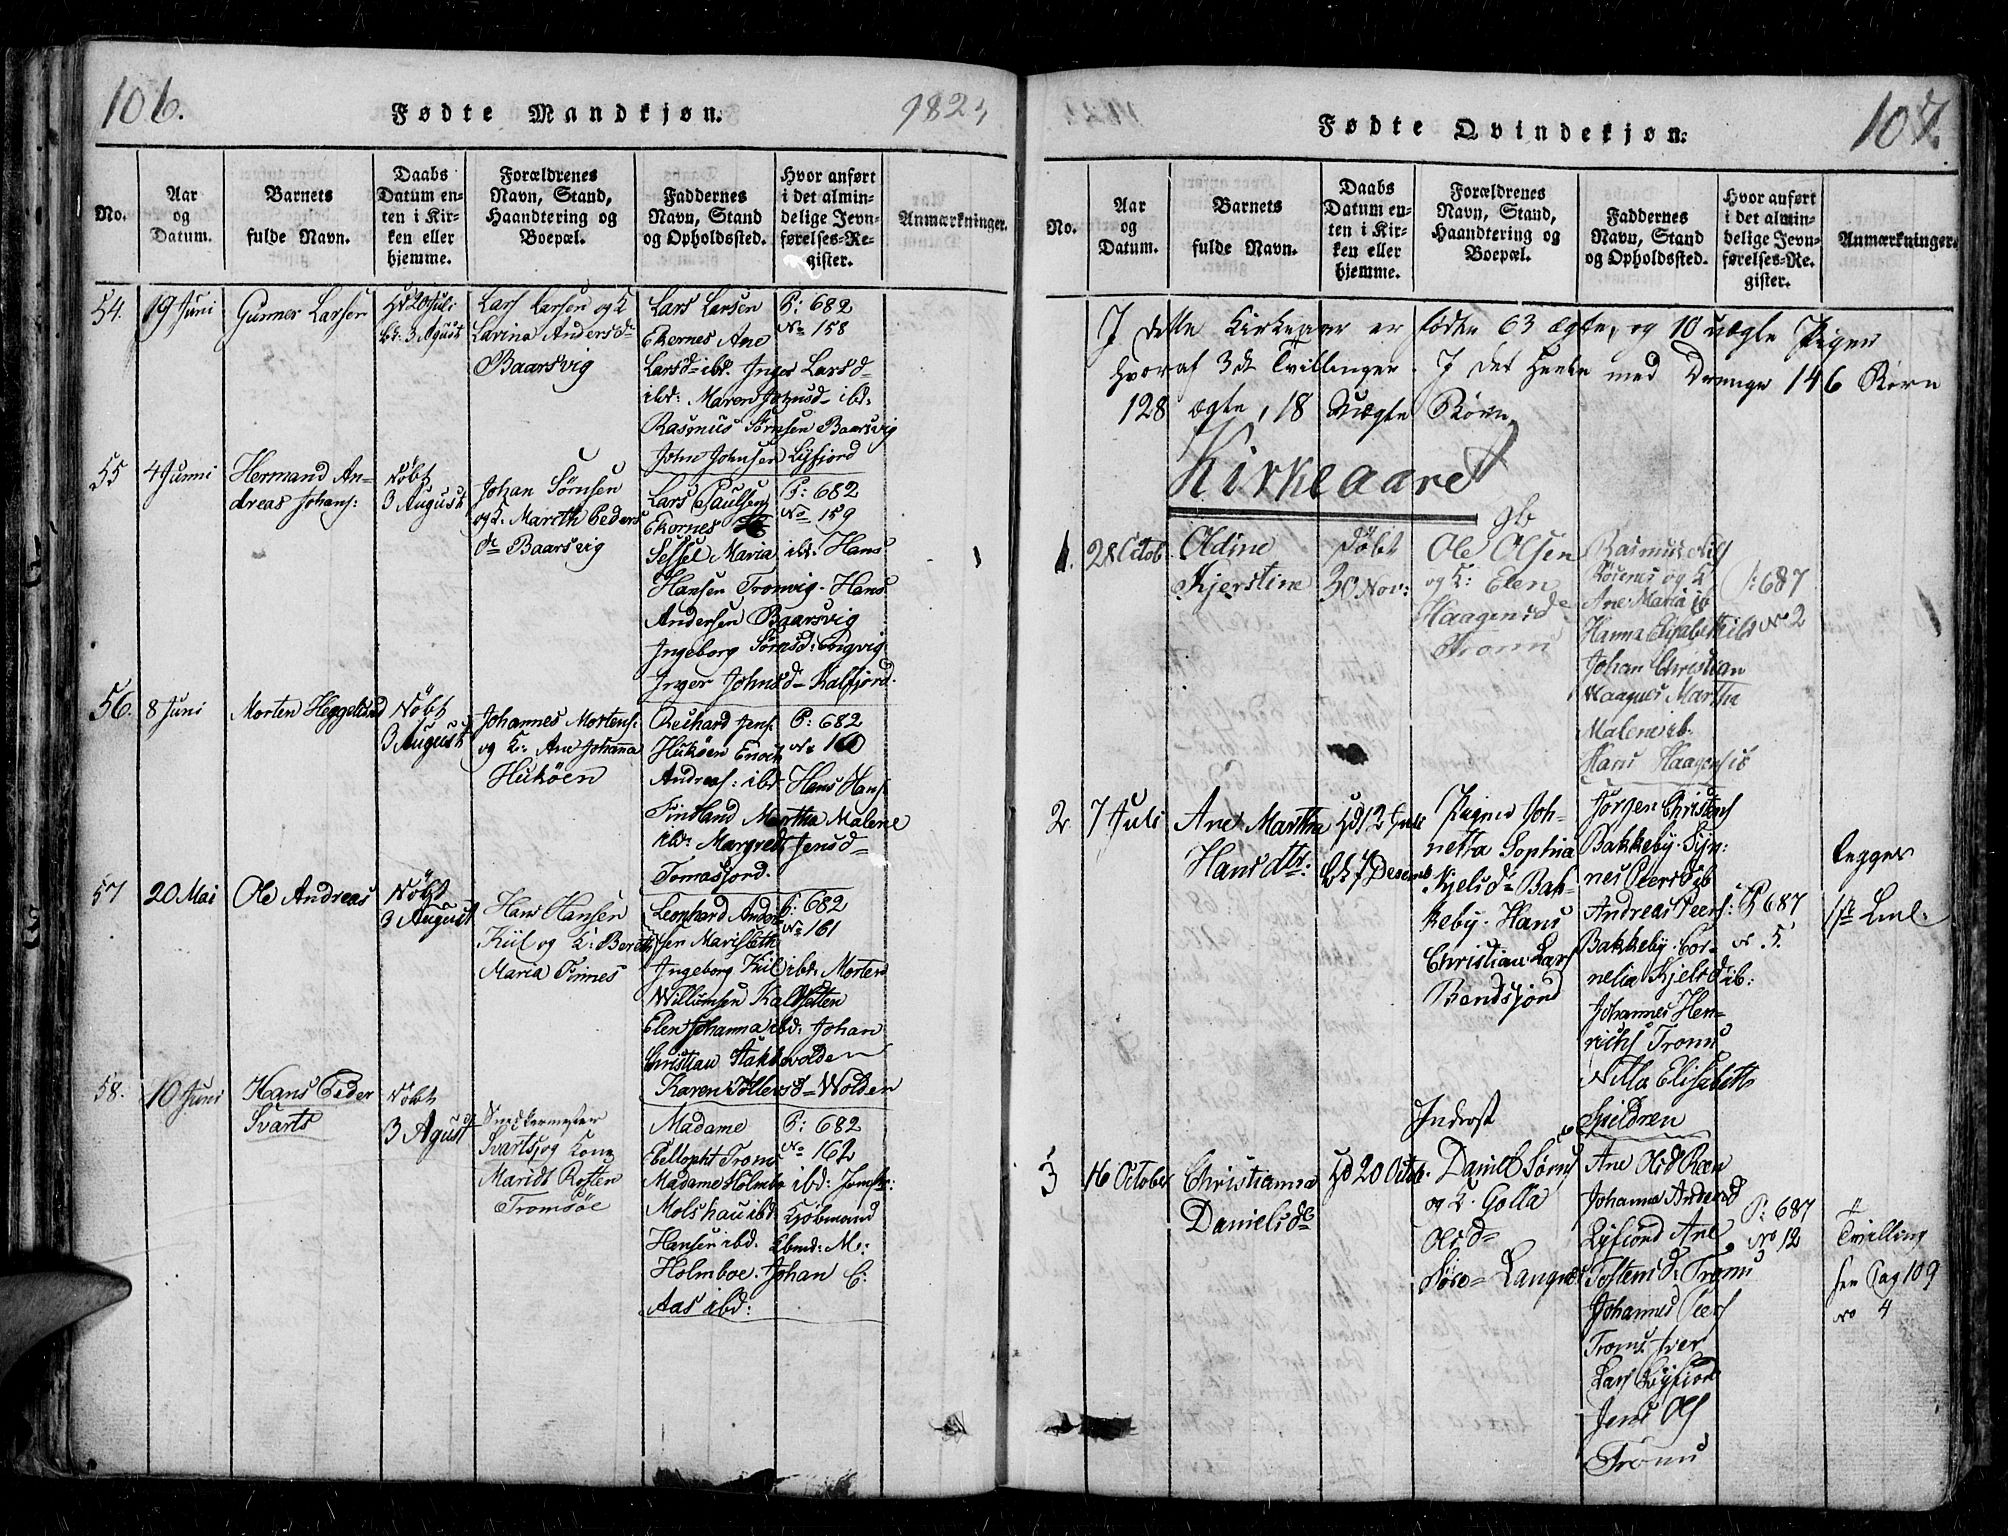 106.
Fødte Mandkjøn.
182
No.
Aar
og
Datum.
Barnets
fulde Navn.
Daabs
Datum en-
ten i Kir-
ken eller
hjemme.
Forældrenes
Navn, Stand,
Haandtering og
Boepæl.
Faddernes
Navn, Stand
og Opholdssted.
Hvor anført
i det almin-
delige Jevn-
førelses-Re-
gister.
Anmærkninger.
54.
19 Juni
Gunner Larsen
Hd 20 Juli
Bk. 3 Agust
Lars Larsen og K
Lavina Andersd
Baarsvig
Lars Larsen
Ekernes Ane
Larsd ibd. Inger Larsd
ibd: Maren Johnsd ibd:
Rasmus Sørnsen Baarsvig
John Johnsen Lyfjord
P: 682
No 158
55
4 Junni
Hermand An-
dreas Johans:
Døbt
3 August
Johan Sørnsen
og K. Mareth Peders
d Baarsvig
Lars Paulsen
Ekornes
Sessel Maria ibd. Hans
Hansen Tronvig. Hans
Andersen Baarsvig
Ingeborg Sørnsd:
Inger Johnsd Kalfjord.
P: 682
No 159
56.
8 Juni
Morten Heggelund
Døbt
3 August
Johannes Mortens.
og K: Ane Johanna
Hukøen
Rechard Jens.
Hukøen Enoch
Andreas: ibd Hans Hans
Findland Martha Malene
ibd: Margreth Jensd
Tomasjord.
P: 682
No 160
57
20 Mai
Ole Andreas
Døbt
3 August
Hans Hansen
Kiil og K: Bereth
Maria Finnes
Leonhard Ander
sen Marisleth
Ingeborg Kiil ibd: Morten
Willumsen Kalsletten
Elen Johanna ibd: Johan
Christian Stakkevolden
Karen Tollersd Wolden
P: 682
No 161
58.
10 Juni
Hans Peder
Svarts
Døbt
3 Agust
Snedkermester
Svarts og Kone
Maridt Rosten
Tromsøe
Madame
Ebeltopht Troms
Madame Holmbo ibd: Jomfr:
Molshau ibd. Kjøbmand
Hansen ibd. Kbmd: M:
Holmboe. Johan C:
Aas ibd:
P: 682
No 162
Fødte Qvindekjøn.
107.
No.
Aar
og
Datum.
Barnets
fulde Navn.
Daabs
Datum en-
ten i Kir-
ken eller
hjemme.
Forældrenes
Navn, Stand,
Haandtering og
Boepæl.
Faddernes
Navn, Stand
og Opholdssted.
Hvor anført
i det almin-
delige Jevn-
førelses-Re-
gister.
Anmærkninger.
I dette Kirkeaar er fødte 63 ægte, og 10 uægte Piger
hvoraf 3de Tvillinger. I det Heele med Drenge 146 Børn
128 ægte, 18 Uægte Børn
Kirkeaaret
1.
28 Octob.
Oldine
Kjerstine
Døbt
30 Nov:
gb
Ole Olsen
og K: Elen
Haagensd
Tromn
Rasmus
og K
Ane Maria ib
Hanna Elisabeth ib
Johan Christian
Martha
Malene ib.
Hans Haagens ib
P: 687
No 2
2
7 Juli
Ane Martha
Hans dtr:
Hd 12 Juli
Bk 7 Decemb
Pigen Joh-
netta Sophia
Kjelsd Bak-
keby. Hans
Christian Lars
Bendsjord
Jørgen Christens
Bakkeby. Syn-
nes Peersd ib
Andreas Peers:
Bakkeby. Cor-
nelia Kjelsd ib:
Johannes Hen-
richs Troms
Nilla Elisabeth
Spildren
P 687
No. 5.
legger
1ste Leml.
3
16 October
Christianna
Danielsd
Hd 20 Octob.
Inderst
Daniel Sørns
og K. Golla
Olsd
Langnes
Ane Olsd Reen
Johanna Andersd
Lyfiord Ane
Tostensd. Troms
Johannes Peers
Troms Iver
Lars Lyfiord
Jens Ols
Troms
P: 687
No 12
Tvilling
see Pag 109
No 4